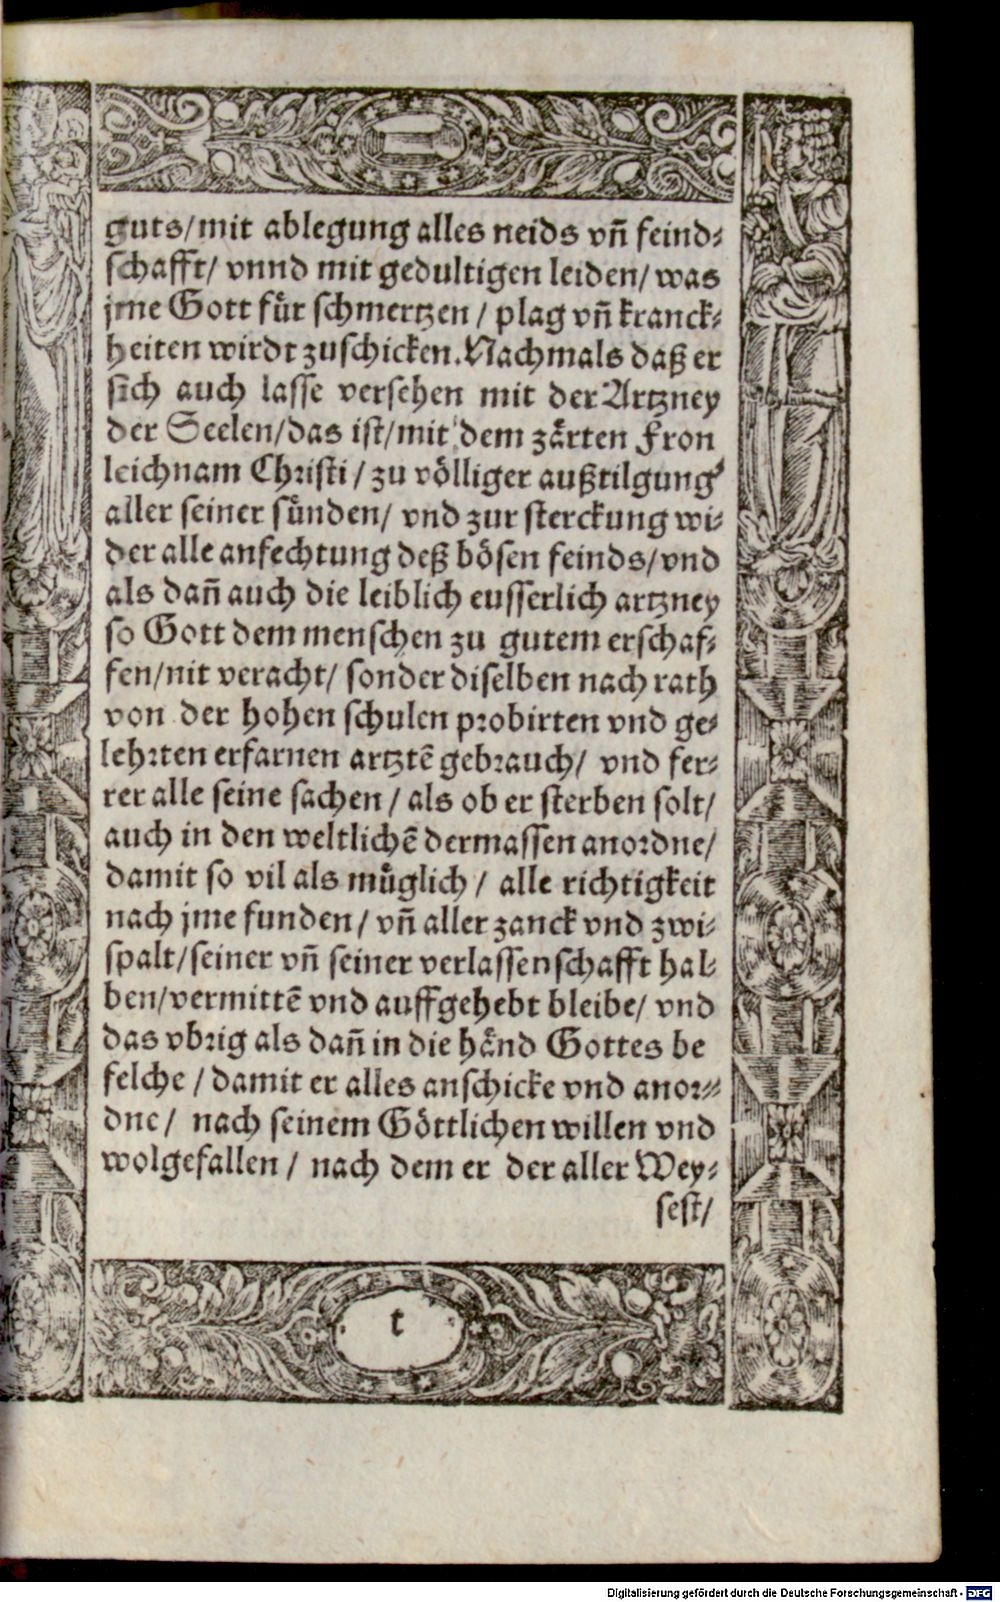 guts/mit ablegung alles neids vñ feind⸗
schafft/ vnnd mit gedultigen leiden/ was
jme Gott fuͤr schmertzen / plag vñ kranck⸗
heiten wirdt zuschicken. Nachmals daß er
sich auch lasse versehen mit der Artzney
der Seelen/das ist/mit dem zaͤrten Fron
leichnam Christi / zu voͤlliger außtilgung
aller seiner suͤnden/ vnd zur sterckung wi⸗
der alle anfechtung deß boͤsen feinds/vnd
als dañ auch die leiblich eusserlich artzney
so Gott dem menschen zu gutem erschaf⸗
fen/nit veracht/ sonder diselben nach rath
von der hohen schulen probirten vnd ge⸗
lehrten erfarnen artztē gebrauch/ vnd fer⸗
rer alle seine sachen / als ob er sterben solt/
auch in den weltlichē dermassen anordne/
damit so vil als muͤglich / alle richtigkeit
nach jme funden/ vñ aller zanck vnd zwi⸗
spalt/seiner vñ seiner verlassenschafft hal⸗
ben/vermittē vnd auffgehebt bleibe/ vnd
das vbrig als dañ in die haͤnd Gottes be
felche / damit er alles anschicke vnd anor⸗
dne/ nach seinem Goͤttlichen willen vnd
wolgefallen / nach dem er der aller Wey⸗
sest/
t
Digitalisierung gefördert durch die Deutsche Forschungsgemeinschaft - DFG